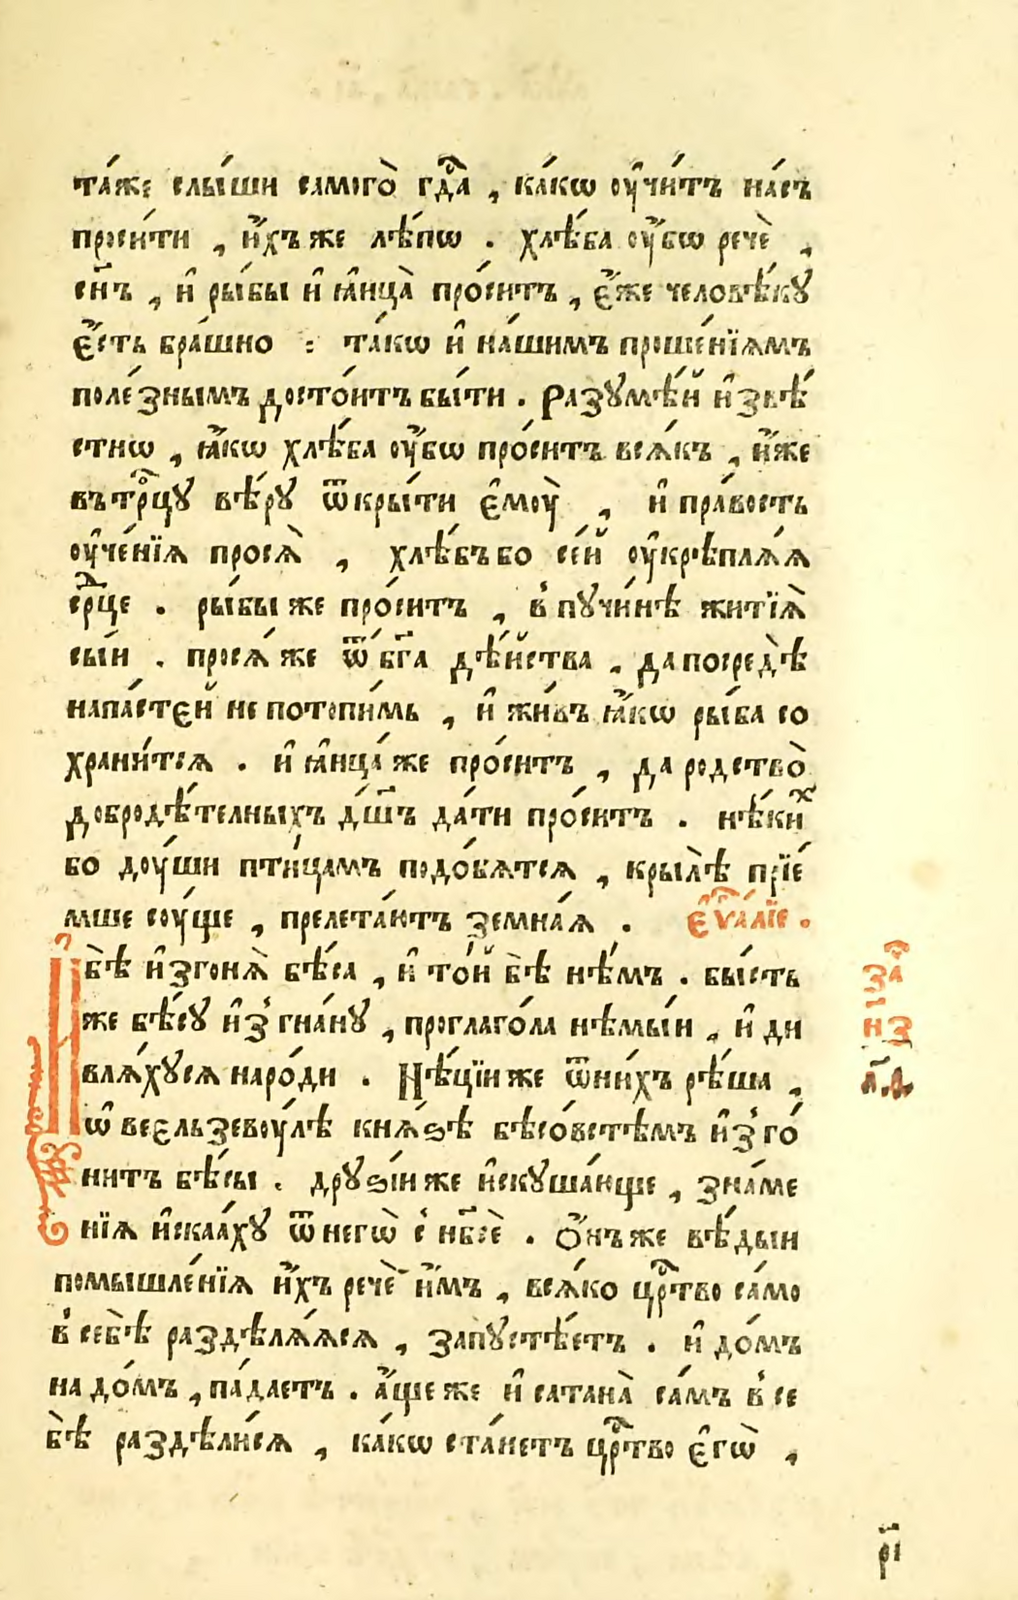 та́же слы́ши самого̀ гдⷭ҇а , ка́кѡ ᲂу҆чи́тъ на́съ
проси́ти , и҆́хъ же лѣ́пѡ . хлѣ́ба ᲂу҆́бѡ речѐ ,
сн҃ъ , и҆ ры́бы и҆ ꙗ҆ица̀ про́ситъ , є҆́же человѣ́кꙋ
є҆́сть бра́шно : та́кѡ и҆ на́шимъ проше́нїѧмъ
поле́знымъ досто́итъ бы́ти . Разꙋмѣ́й и҆звѣ́
стнѡ , ꙗ҆́кѡ хлѣ́ба ᲂу҆́бѡ про́ситъ всѧ́къ , и҆́же
въ трⷪ҇цꙋ вѣ́рꙋ ѿкры́ти є҆моу̀ , и҆ пра́вость
ᲂу҆че́нїѧ просѧ̀ , хлѣ́бъ бо се́й ᲂу҆крѣплѧ́ѧ
срⷣце . ры́бы же про́ситъ , в̾ пꙋчи́нѣ житїѧ̀
сы́и . просѧ́ же ѿ бг҃а дѣ́йства , да посредѣ̀
напа́стей не пото́пимъ , и҆ жи́въ ꙗ҆́кѡ ры́ба со
храни́тсѧ . и҆ ꙗ҆ица́ же про́ситъ , да родство̀
добродѣ́телныхъ дш҃ъ да́ти про́ситъ . нѣ́киⷯ
бо доу́ши пти́цамъ подо́бѧтсѧ , крылѣ̀ прїе́
мше соу́ще , прелета́ютъ земна́ѧ . є҆ѵⷢ҇а́лїе .
И҆ бѣ̀ и҆згонѧ̀ бѣ́са , и҆ то́й бѣ̀ нѣ́мъ . бы́сть
же бѣ́сꙋ и҆з̾гна́нꙋ , проглаго́ла нѣмы́и , и҆ ди
влѧ́хꙋсѧ наро́ди . Нѣ́цїи же ѿ ни́хъ рѣ́ша ,
ѡ҆ веельзевоу́лѣ кнѧ́ѕѣ бѣсо́встѣмъ и҆з̾го́
нитъ бѣ́сы . дрꙋѕі́и же и҆скꙋша́юще , зна́ме
нїѧ и҆скаа́хꙋ ѿ негѡ̀ с̾ нб҃сѐ . Ѻ҆́нъ же вѣ́дыи
помышле́нїѧ и҆́хъ речѐ и҆́мъ , всѧ́ко црⷭ҇тво са́мо
в̾ себѣ̀ раздѣлѧ́ѧсѧ , запꙋстѣ́етъ . и҆ до́мъ
на до́мъ , па́даетъ . а҆́ще же и҆ сатана̀ са́мъ в̾ се
бѣ̀ раздѣли́сѧ , ка́кѡ ста́нетъ црⷭ҇тво є҆гѡ̀ ,
заⷱ҇
н҃з
л҃.в.
р҃і